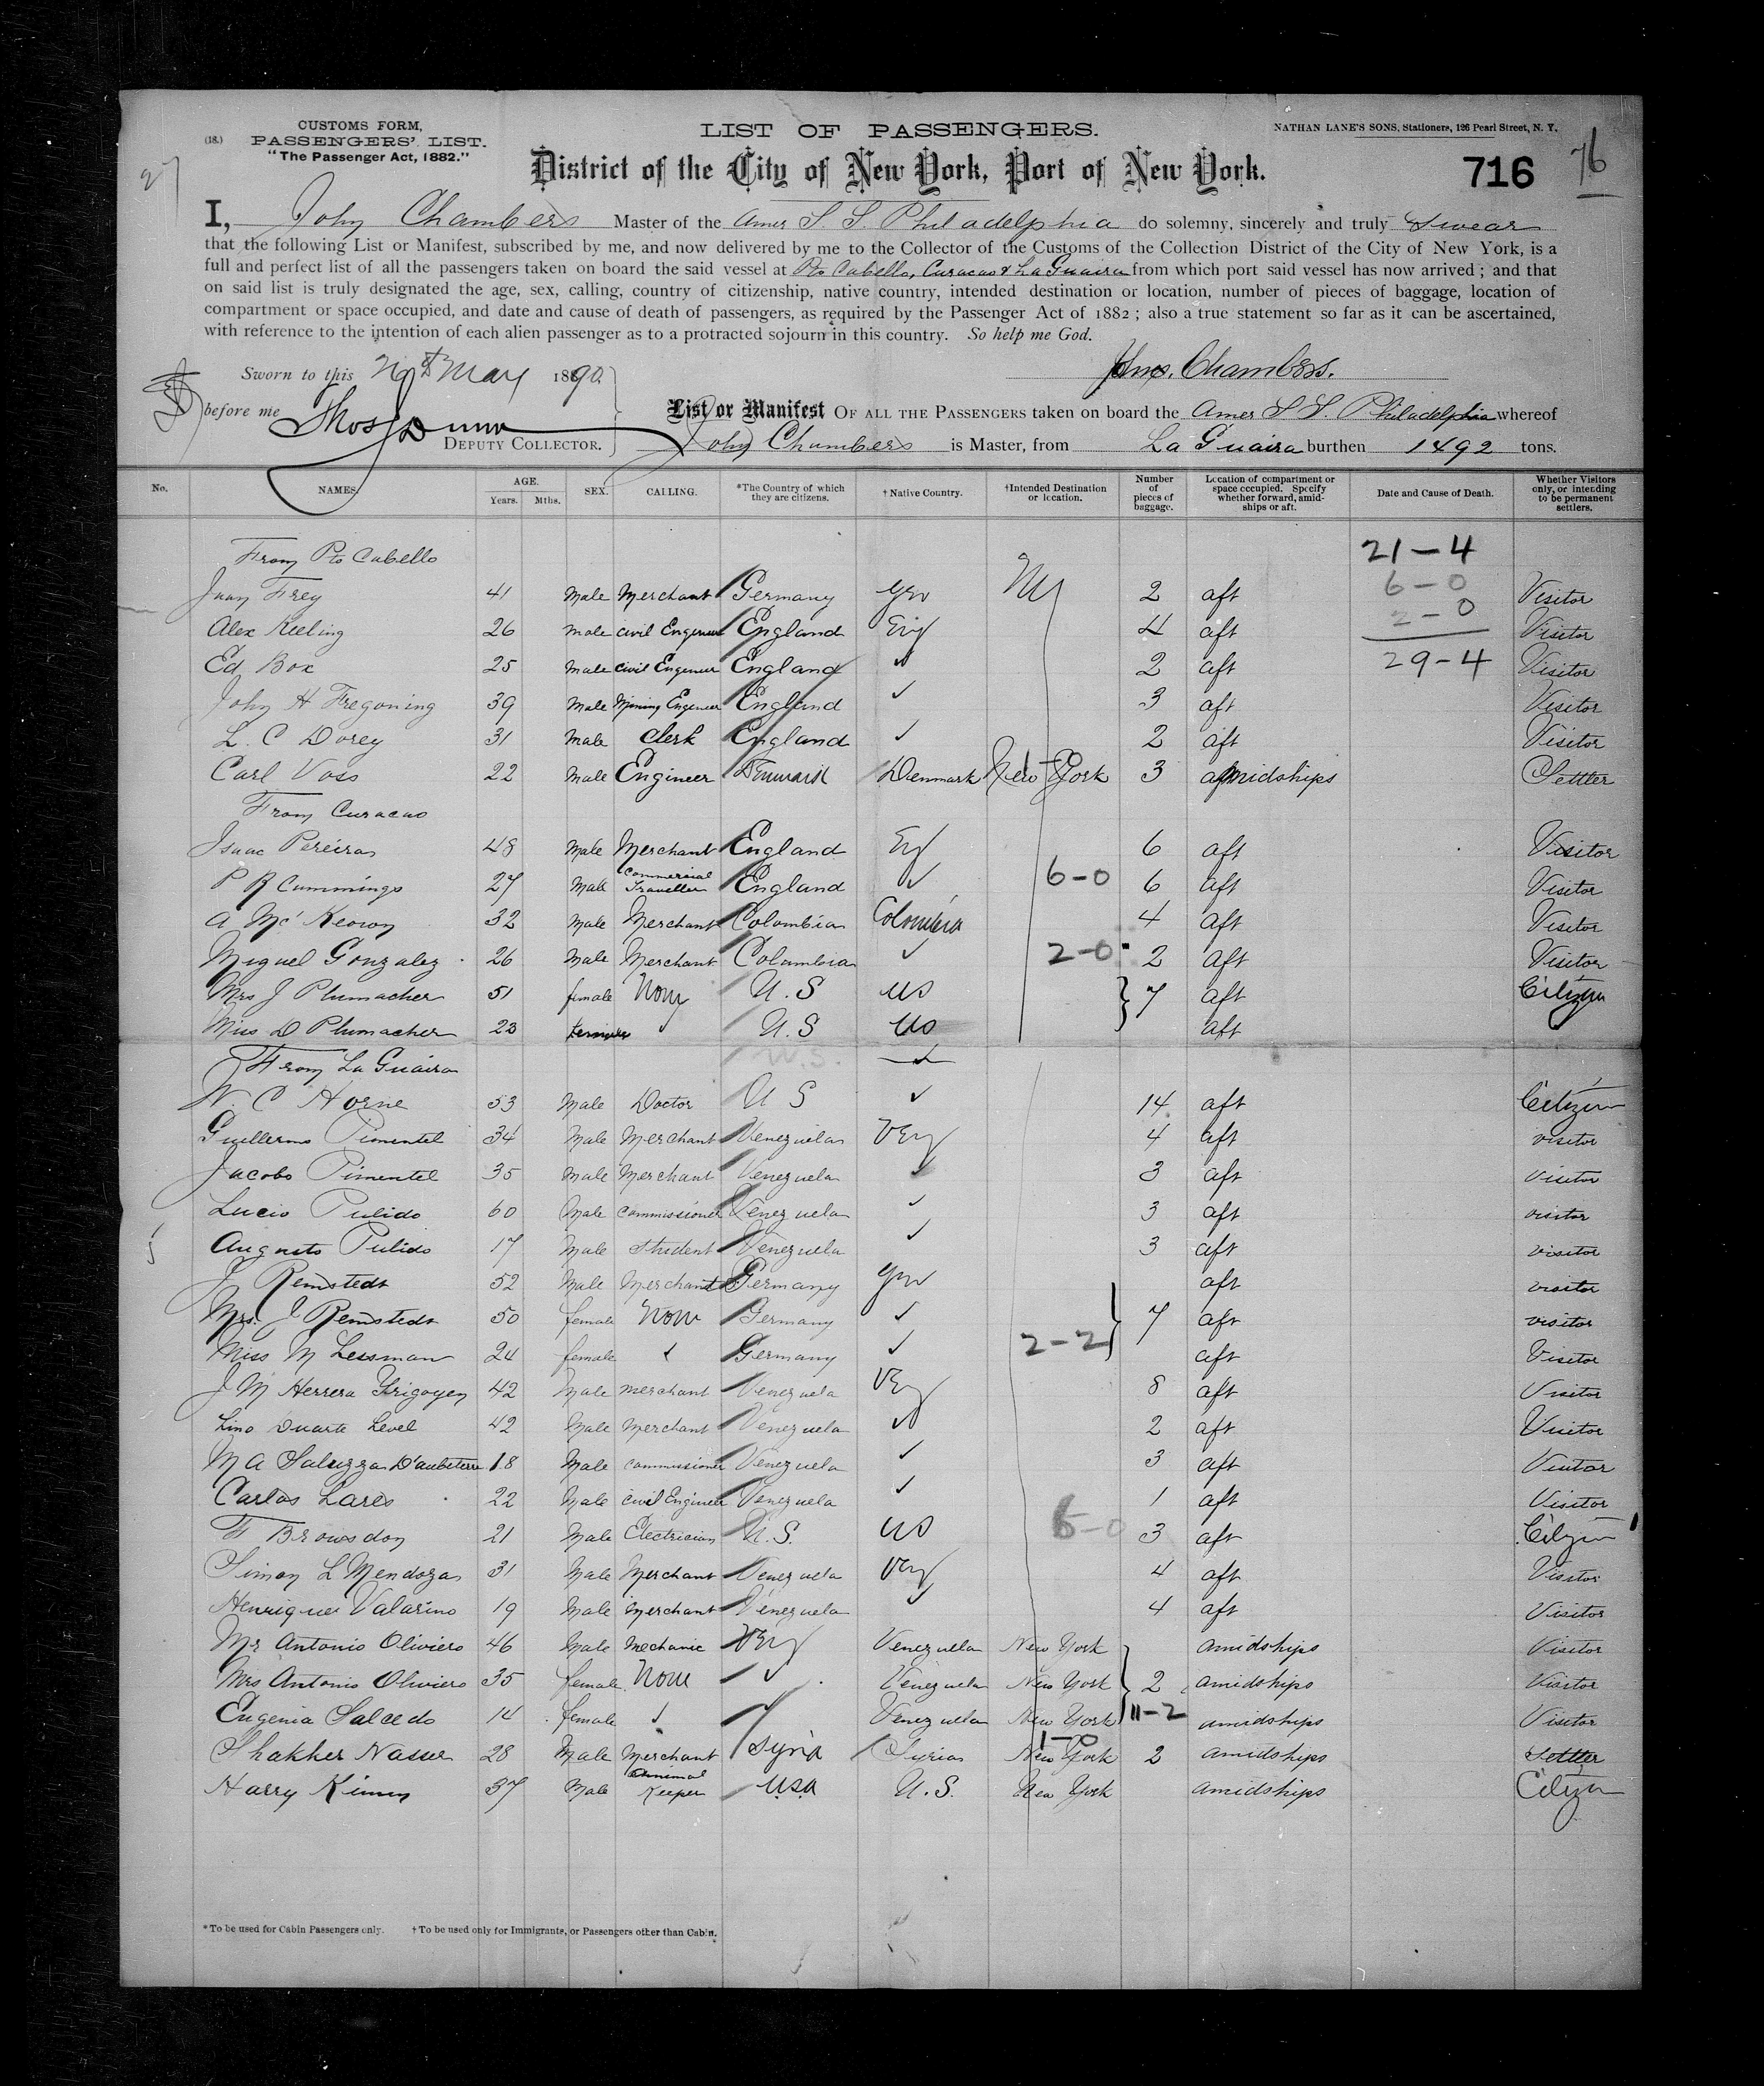 (18.)
CUSTOMS FORM,
PASSENGERS' LIST.
"The Passenger Act, 1882."
LIST OF PASSENGERS.
NATHAN LANE'S SONS, Stationers, 126 Pearl Street, N. Y.
District of the City of New York, Port of New York.
716 76
I, John Chambers Master of the Amer S. S. Philadelphia do solemny, sincerely and truly Swear
that the following List or Manifest, subscribed by me, and now delivered by me to the Collector of the Customs of the Collection District of the City of New York, is a
full and perfect list of all the passengers taken on board the said vessel at Pto Cabello, Curacao & La Guaira from which port said vessel has now arrived; and that
on said list is truly designated the age, sex, calling, country of citizenship, native country, intended destination or location, number of pieces of baggage, location of
compartment or space occupied, and date and cause of death of passengers, as required by the Passenger Act of 1882; also a true statement so far as it can be ascertained,
with reference to the intention of each alien passenger as to a protracted sojourn in this country. So help me God.
Jno. Chambers.
Sworn to this May 1890
before me Thos J Dunn
DEPUTY COLLECTOR.
List or Manifest OF ALL THE PASSENGERS taken on board the Amer S. S. Philadelphia whereof
John Chambers is Master, from La Guaira burthen 1492 tons.
No. NAMES. AGE. Years. Mths. SEX. CALLING. *The Country of which they are citizens. †Native Country. †Intended Destination or location. Number of pieces of baggage. Location of compartment or space occupied. Specify whether forward, amidships or aft. Date and Cause of Death. Whether Visitors only, or intending to be permanent settlers.
From Pto Cabello 21-4
Juan Frey 41 Male Merchant Germany Ger NY 2 aft 6-0 Visitor
Alex Keeling 26 Male Civil Engineer England Eng 4 aft 2-0 Visitor
Ed Box 25 Male Civil Engineer England ✓ 2 aft 29-4 Visitor
John H Tregoning 39 Male Mining Engineer England ✓ 3 aft Visitor
L. C Dorey 31 Male Clerk England ✓ 2 aft Visitor
Carl Voss 22 Male Engineer Denmark Denmark New York 1-0 3 amidships Settler
From Curacao
Isaac Pereira 48 Male Merchant England Eng 6 aft Visitor
P R Cummings 27 Male Commercial Traveller England ✓ 6-0 6 aft Visitor
A McKeown 32 Male Merchant Colombia Colombia 4 aft Visitor
Miguel Gonzalez 26 Male Merchant Colombia ✓ 2-0 2 aft Visitor
Mrs J Plumacher 51 female None U.S US 7 aft Citizen
Miss D Plumacher 23 female ✓ U.S US aft
From La Guaira U.S. ✓
W. C Horne 53 Male Doctor U S ✓ 14 aft Citizen
Guillermo Pimentel 34 Male Merchant Venezuela Ven 4 aft visitor
Jacobo Pimentel 35 Male Merchant Venezuela ✓ 3 aft visitor
Lucio Pulido 60 Male Commissioner Venezuela ✓ 3 aft visitor
Augusto Pulido 17 Male Student Venezuela ✓ 3 aft visitor
J Remstedt 52 Male Merchant Germany Ger aft visitor
Mrs. J Remstedt 50 female None Germany ✓ 7 aft visitor
Miss M Lessman 24 female ✓ Germany ✓ 2-2 aft Visitor
J M Herrera Yrigoyen 42 Male Merchant Venezuela Ven 8 aft Visitor
Lino Duarte Level 42 Male Merchant Venezuela ✓ 2 aft Visitor
M A Saluzzo D'aubeterre 18 Male Commissioner Venezuela ✓ 3 aft Visitor
Carlos Lares 22 Male Civil Engineer Venezuela ✓ 1 aft Visitor
F Browsdon 21 Male Electrician U.S. US 6-0 3 aft Citizen
Simon L Mendoza 31 Male Merchant Venezuela Ven 4 aft Visitor
Henrique Valarino 19 Male Merchant Venezuela ✓ 4 aft Visitor
Mr Antonio Oliviero 46 Male Mechanic Ven Venezuela New York amidships Visitor
Mrs Antonio Oliviero 35 female None ✓ Venezuela New York 2 amidships Visitor
Eugenia Salcedo 14 female ✓ Venezuela New York 11-2 amidships Visitor
Shakher Nasser 28 Male Merchant Syria Syria New York 1-0 2 amidships Settler
Harry Kimm 37 Male Animal Keeper USA U.S. New York amidships Citizen
*To be used for Cabin Passengers only. †To be used only for Immigrants, or Passengers other than Cabin.